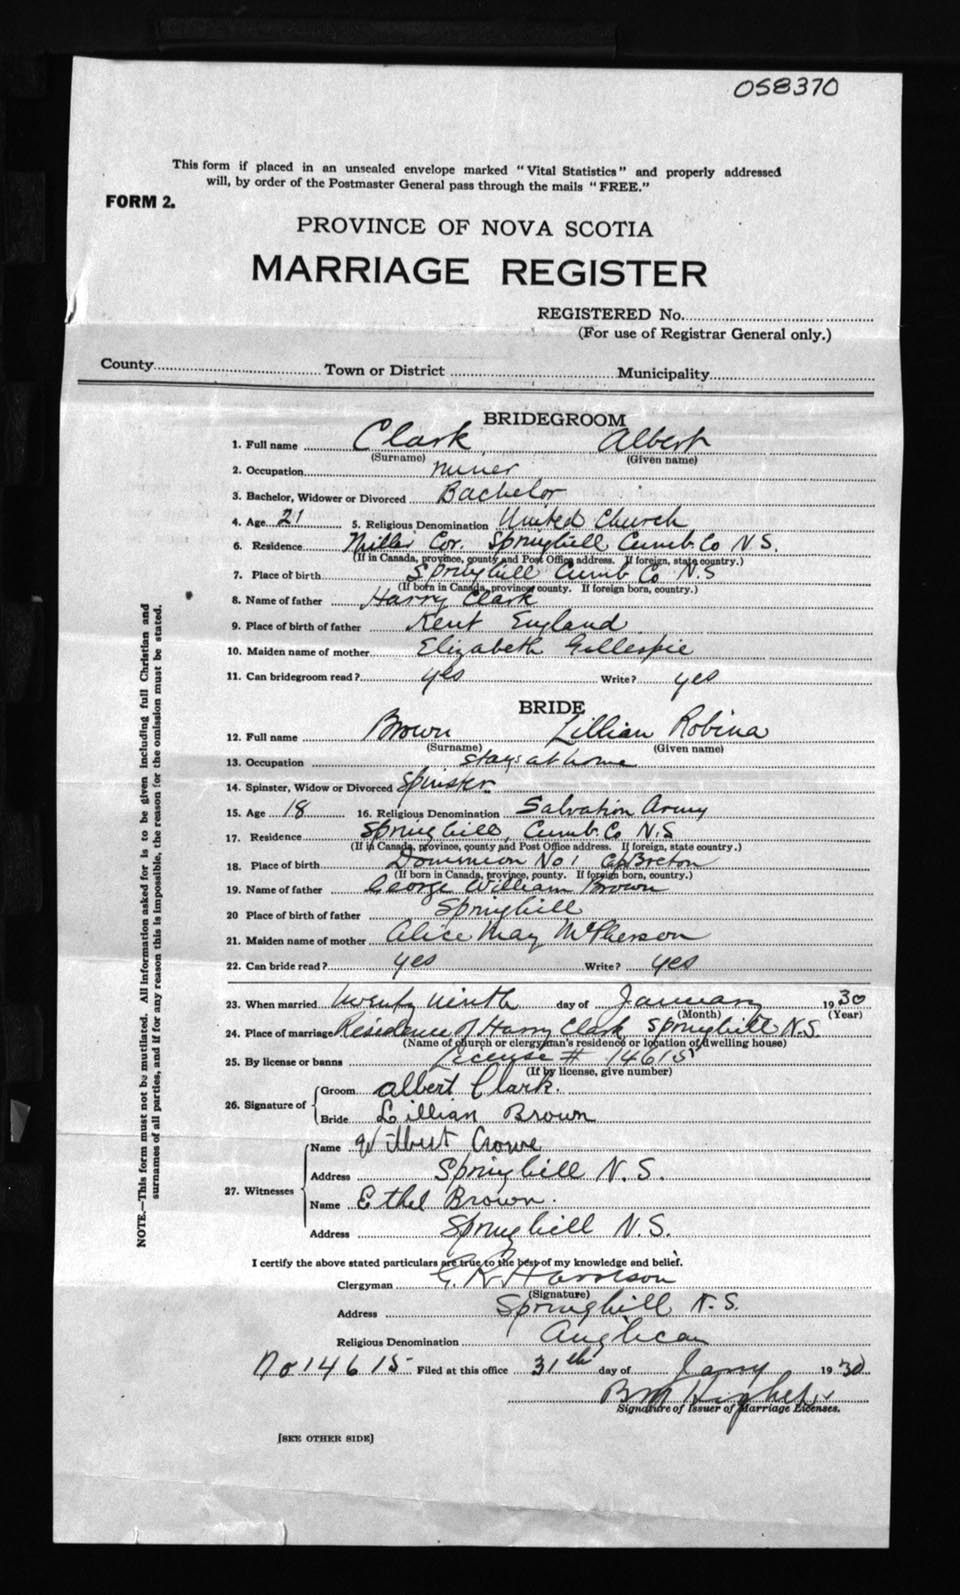 058370
This form if placed in an unsealed envelope marked "Vital Statistics" and properly addressed
will, by order of the Postmaster General pass through the mails "FREE."
FORM 2.
PROVINCE OF NOVA SCOTIA
MARRIAGE REGISTER
REGISTERED No.
(For use of Registrar General only.)
County Town or District Municipality
BRIDEGROOM
1. Full name Clark Albert
(Surname) (Given name)
2. Occupation miner
3. Bachelor, Widower or Divorced Bachelor
4. Age 21 5. Religious Denomination United Church
6. Residence Miller Cor. Springhill Cumb. Co N.S.
(If in Canada, province, county and Post Office address. If foreign, state country.)
7. Place of birth Springhill Cumb Co N.S
(If born in Canada, province, county. If foreign born, country.)
8. Name of father Harry Clark
9. Place of birth of father Kent England
10. Maiden name of mother Elizabeth Gillespie
11. Can bridegroom read? yes Write? yes
BRIDE
12. Full name Brown Lillian Robina
(Surname) (Given name)
13. Occupation stays at home
14. Spinster, Widow or Divorced Spinster
15. Age 18 16. Religious Denomination Salvation Army
17. Residence Springhill, Cumb. Co N.S
(If in Canada, province, county and Post Office address. If foreign, state country.)
18. Place of birth Dominion No 1 C. Breton
(If born in Canada, province, county. If foreign born, country.)
19. Name of father George William Brown
20 Place of birth of father Springhill
21. Maiden name of mother Alice May McPherson
22. Can bride read? yes Write? yes
23. When married twenty ninth day of January 1930
(Month) (Year)
24. Place of marriage Residence of Harry Clark Springhill N.S.
(Name of church or clergyman's residence or location of dwelling house)
25. By license or banns License # 14615
(If by license, give number)
26. Signature of Groom Albert Clark.
Bride Lillian Brown
27. Witnesses Name Wilbert Crowe
Address Springhill N.S.
Name Ethel Brown.
Address Springhill N.S.
I certify the above stated particulars are true to the best of my knowledge and belief.
Clergyman G. R. Harrison
(Signature)
Address Springhill N.S.
Religious Denomination Anglican
No 14615 Filed at this office 31th day of Jany 1930
B M Hughes
Signature of Issuer of Marriage Licenses.
[SEE OTHER SIDE]
NOTE.—This form must not be mutilated. All information asked for is to be given including full Christian and
surnames of all parties, and if for any reason this is impossible, the reason for the omission must be stated.